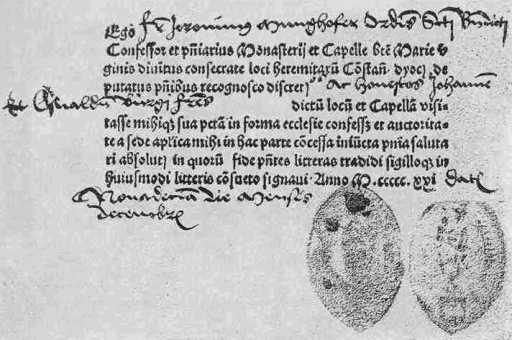 Ego Fr Jeronimus Munghofer Ordis Scti Bndicti
Confessor et pñiarius Monasterij et Capelle btē Marie v
ginis diuitus consecrate loci heremitarū Cōstañ. dyoc̄. de
putatus pñibus recognosco discret Ac honestos Johannē
et Oswaldū Burgi frēs dictū locū et Capellā visi-
tasse mihiqȝ sua pctā in forma ecclesie confessȝ et auctorita-
te a sede aplica mihi in hac parte cōcessa iniūcta pnīa saluta
ri absoluti in quorū fide pñtes litteras tradidi sigilloqȝ in
huiusmodi litteris cōsueto signaui. Anno M.ccccc.xxi Dat
Nonadecima die Mensis
decembr